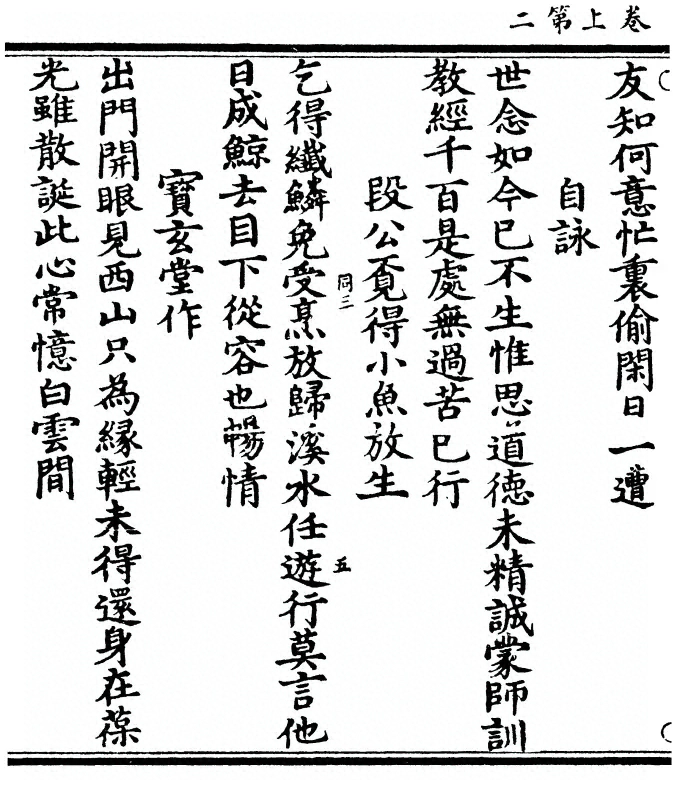 卷上第二
友知何意忙裏偷閑日一遭
自詠
世念如今已不生惟思道德未精誠蒙師訓
教經千百是處無過苦已行
段公覔得小魚放生
乞得纖鱗免受烹放歸溪水任遊行莫言他
同三
五
日成鯨去目下從容也暢情
寶玄堂作
出門開眼見西山只為緣輕未得還身在葆
光雖散誕此心常憶白雲間